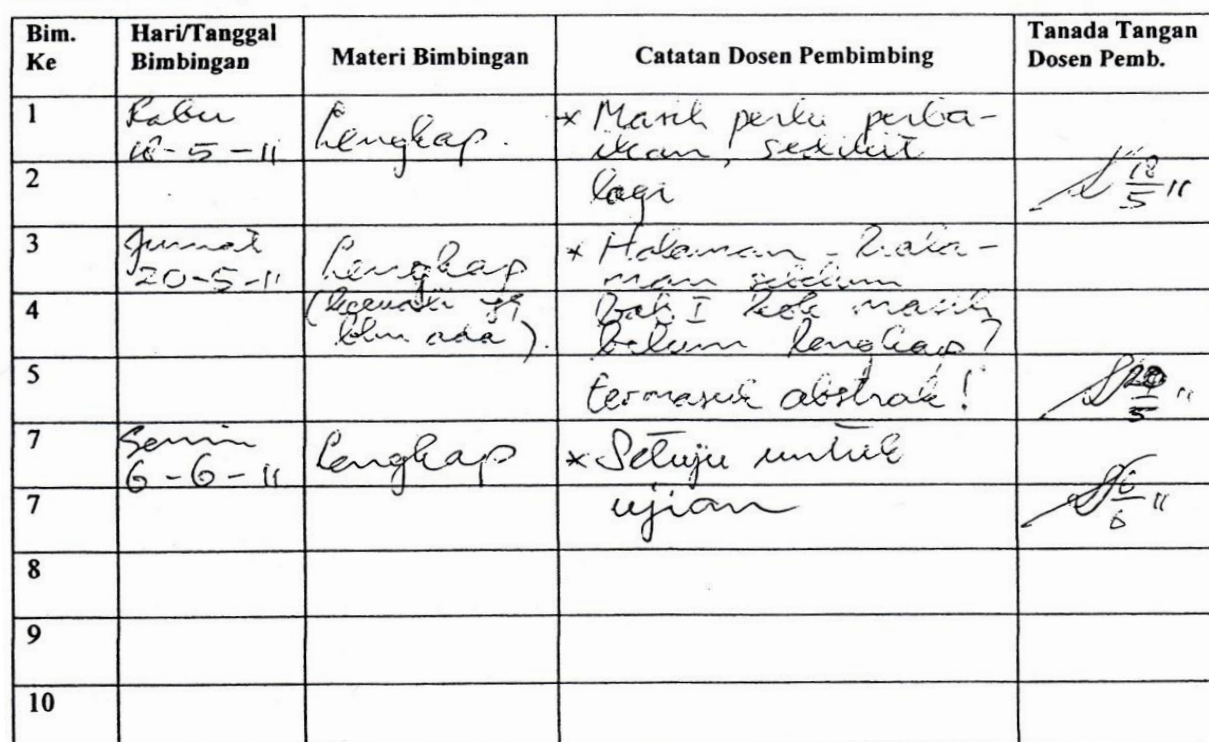 Bim. Ke
Hari/Tanggal Bimbingan
Materi Bimbingan
Catatan Dosen Pembimbing
Tanada Tangan Dosen Pemb.
1
Rabu
18-5-11
Lengkap.
* Masih perlu perba-
ikan, sedikit
2
lagi
18/5 11
3
Jumat
20-5-11
Lengkap
* Halaman - hala-
man sebelum
4
(kecuali yg
blm ada).
Bab I kok masih
belum lengkap?
5
termasuk abstrak!
20/5 11
7
Senin
6-6-11
Lengkap
* Setuju untuk
7
ujian
6/6 11
8
9
10